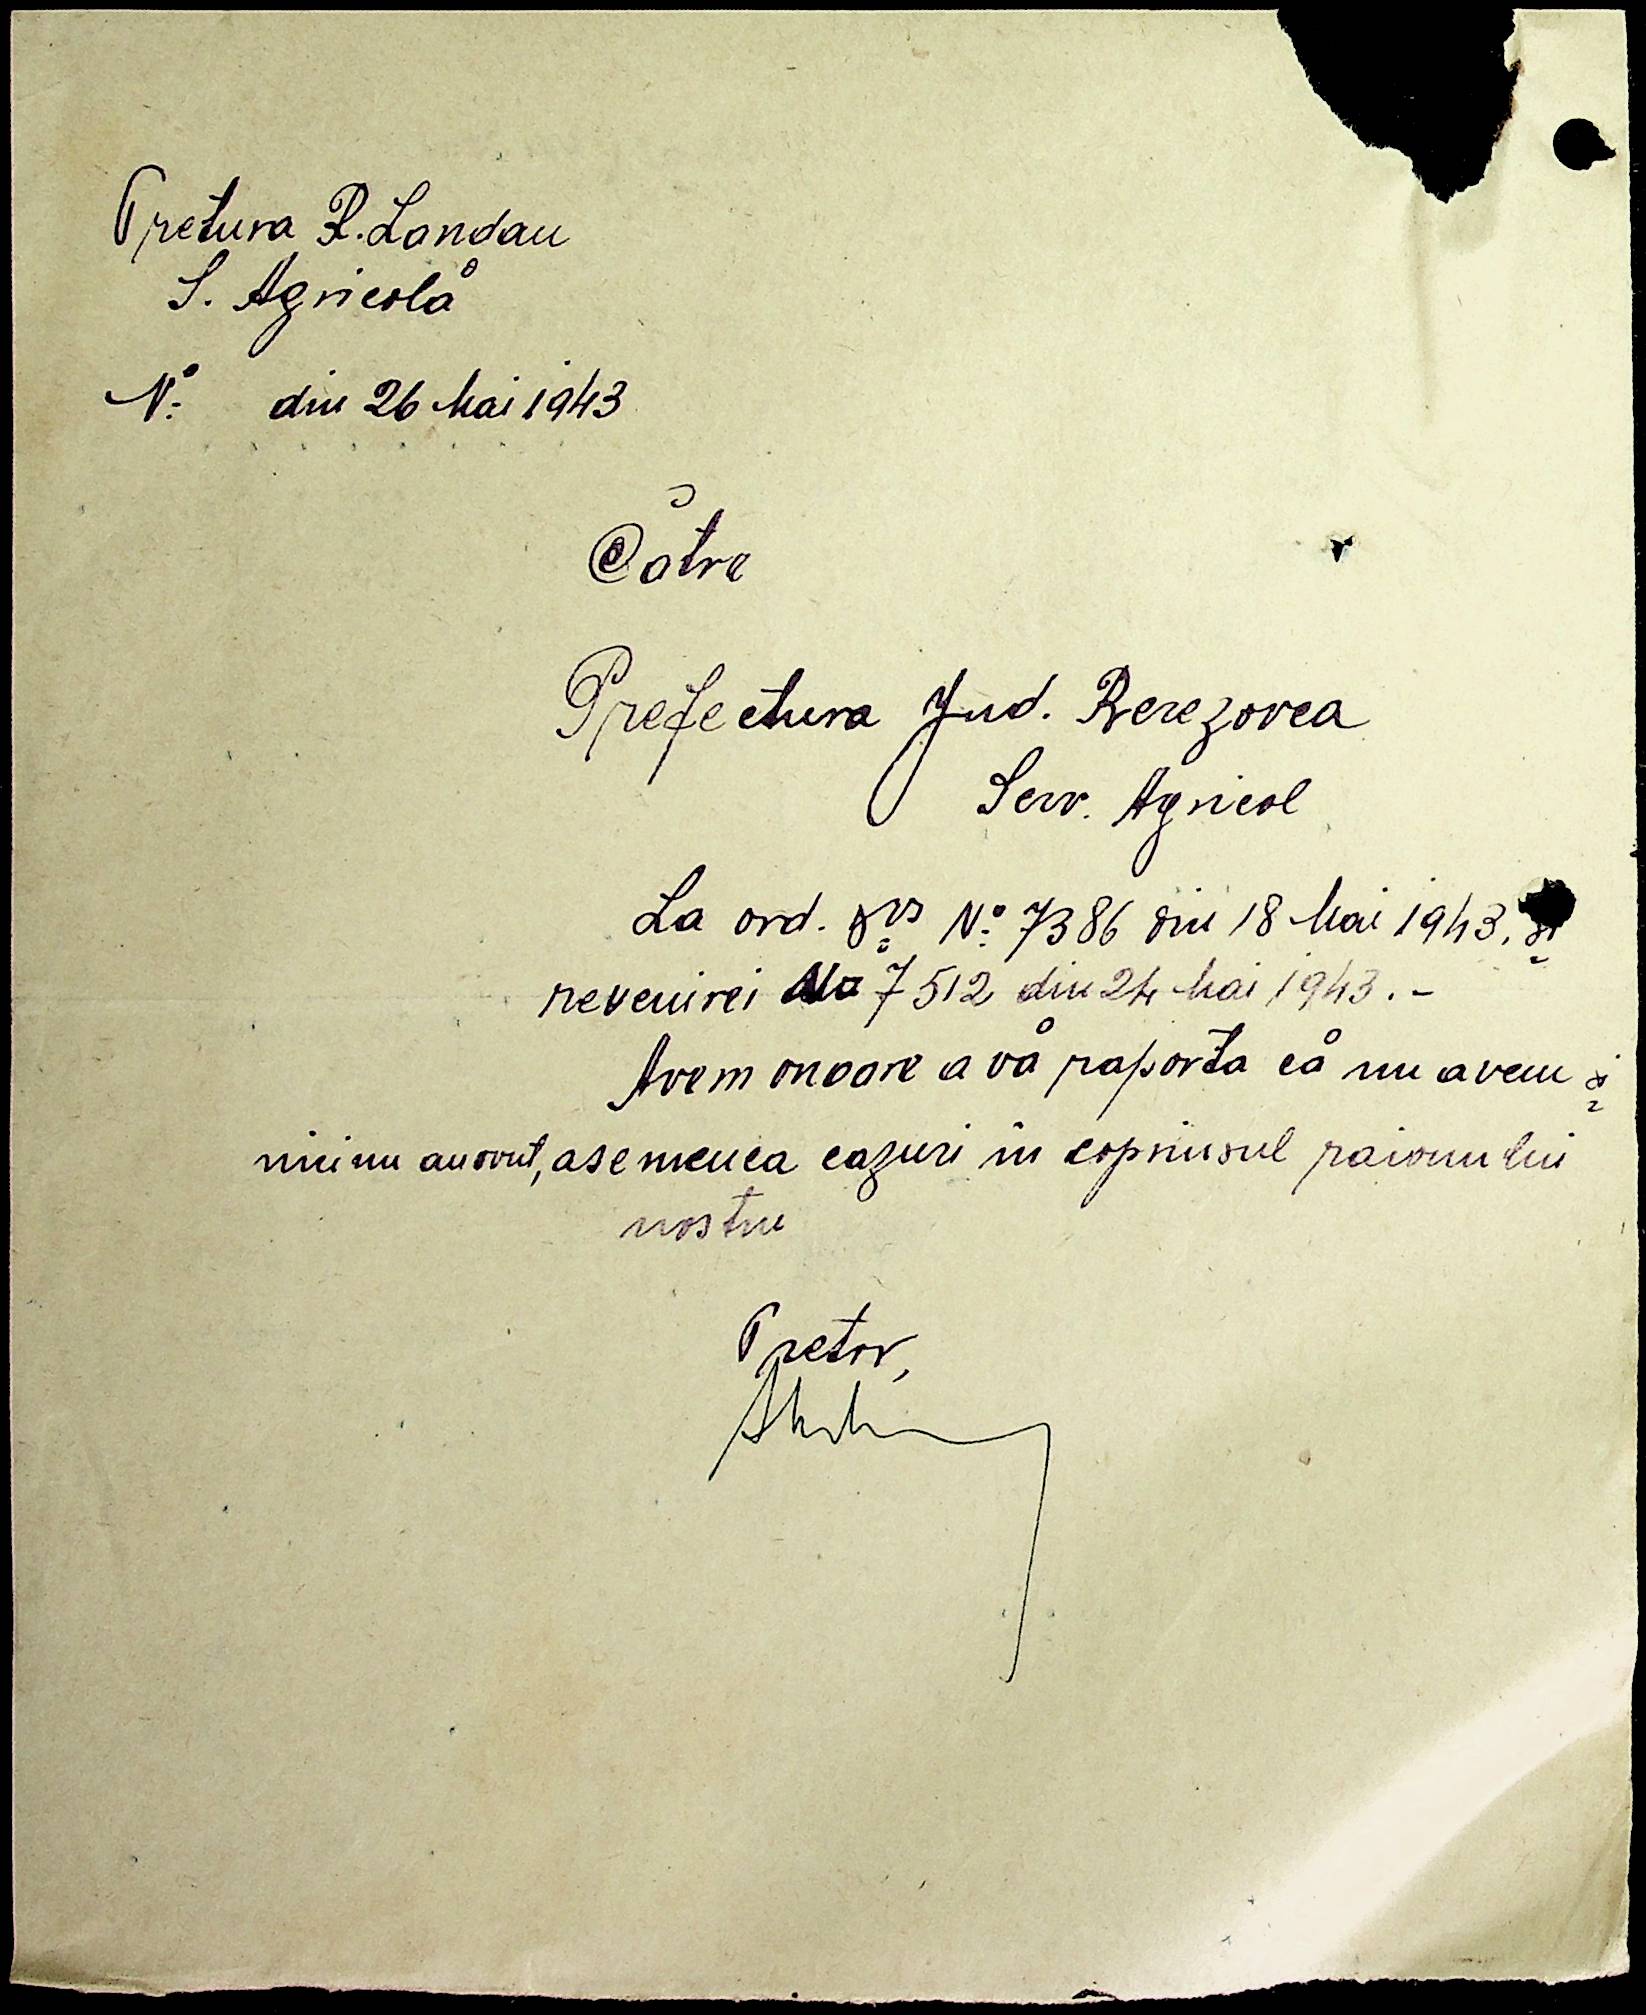 Pretura R. Landau
S. Agricolă
Nº din 26 Mai 1943
Către
Prefectura Jud. Berezovca
Serv. Agricol
La ord. dvs Nº 7386 din 18 Mai 1943, și
revenirei No 7512 din 24 Mai 1943.-
Avem onoare a vă raporta că nu avem și
nici nu am avut, asemenea cazuri în coprinsul raionului
nostru
Pretor,